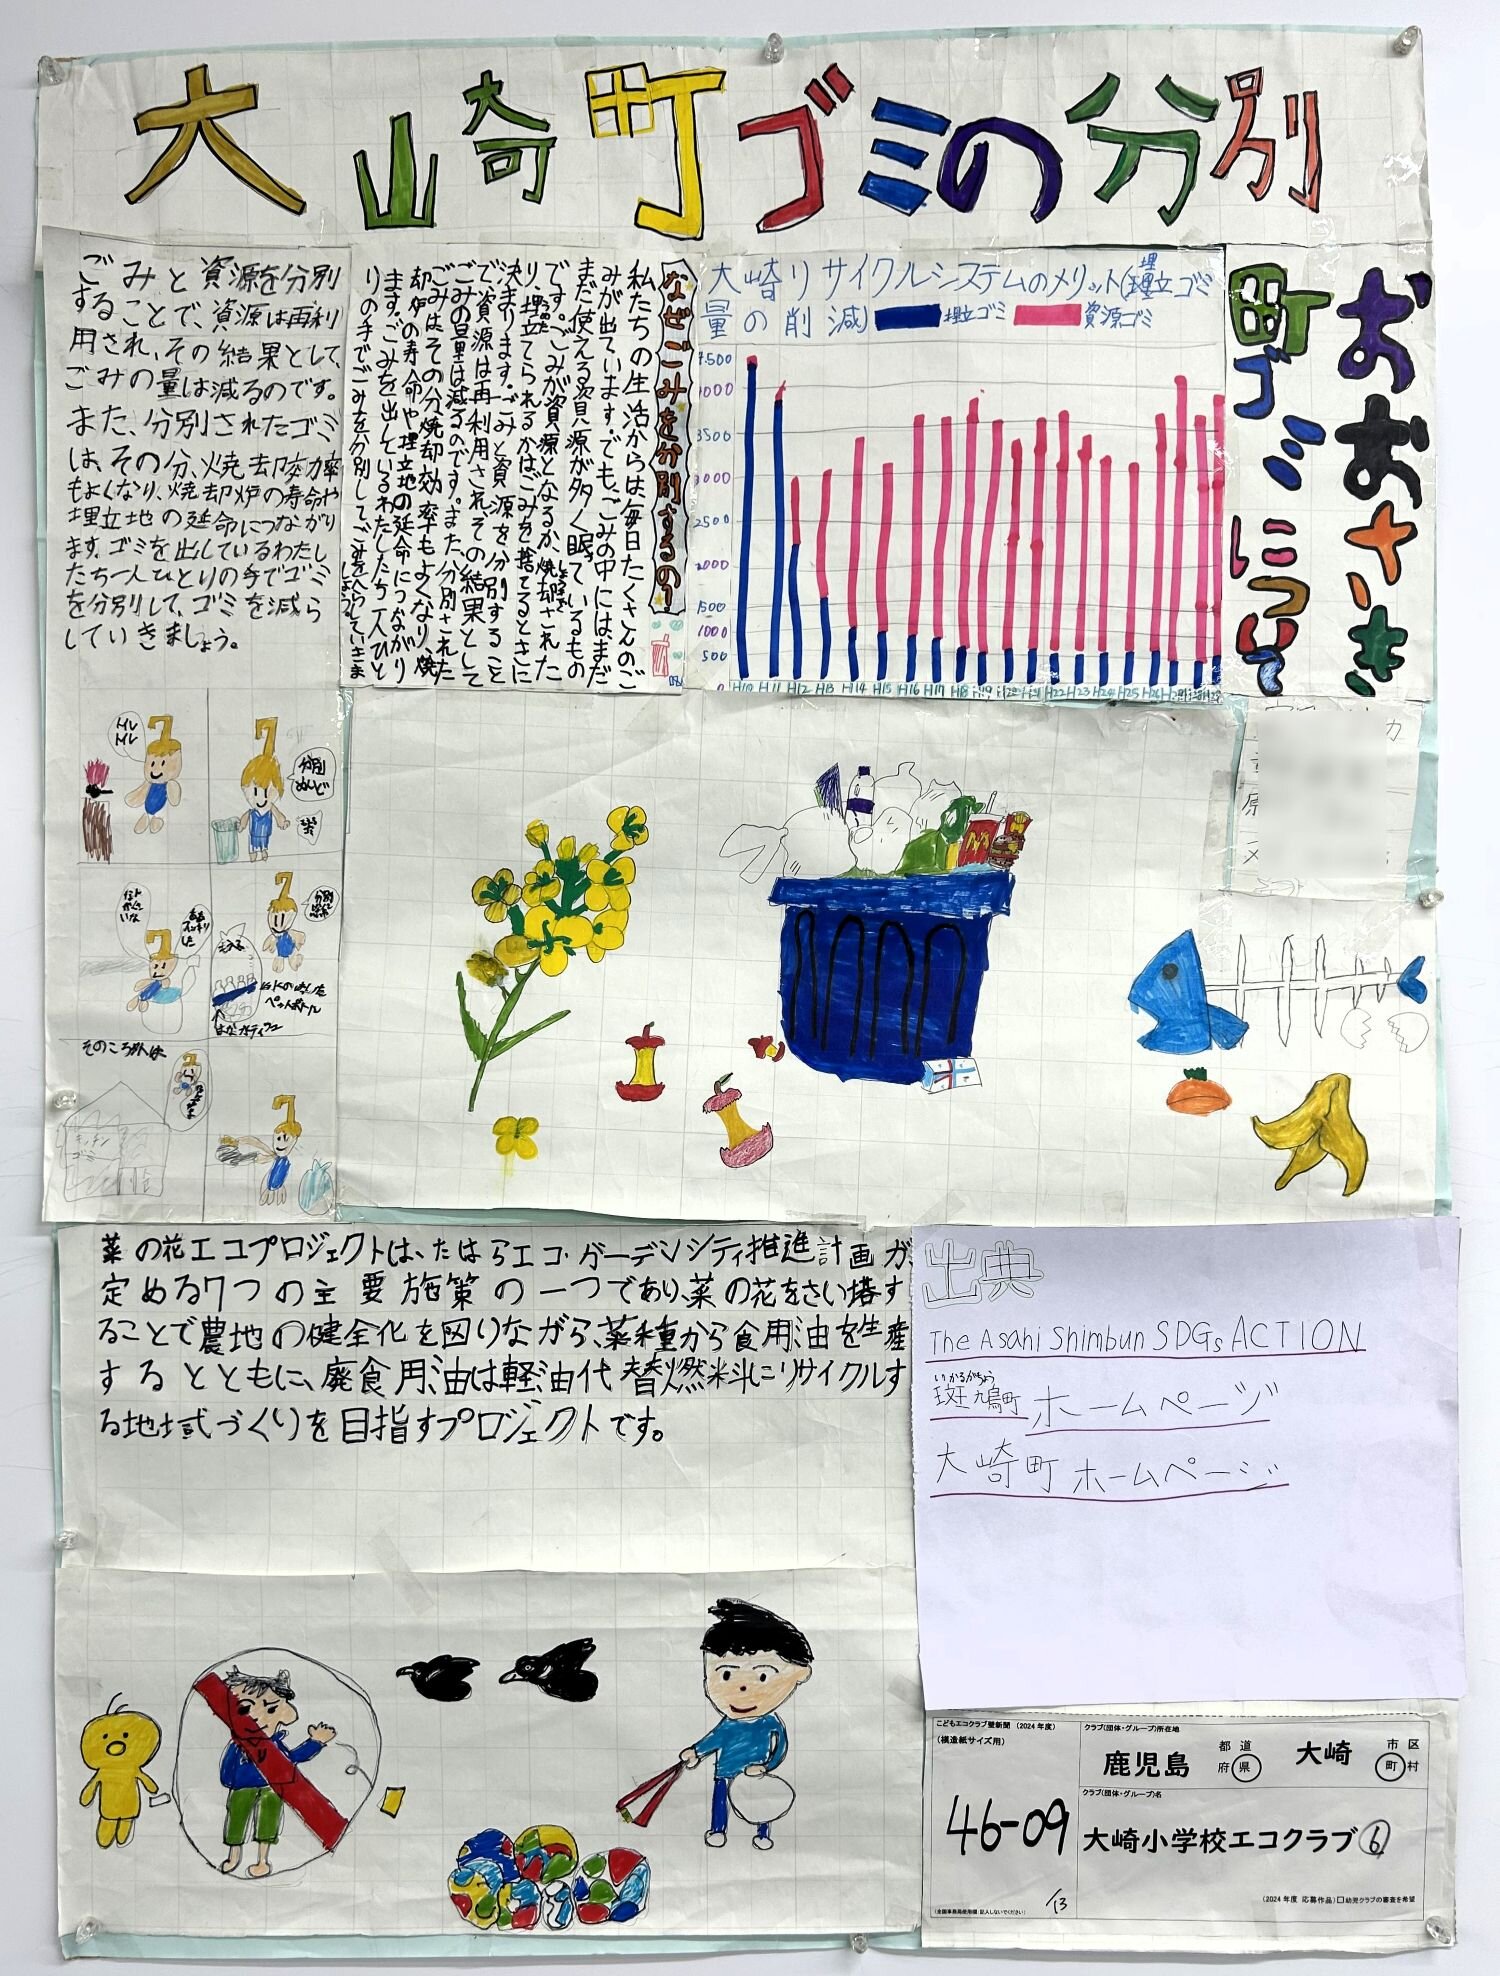 大崎町ゴミの分別
おおさき
町ゴミについて
大崎リサイクルシステムのメリット(埋立ゴミ
量の削減)
埋立ゴミ
資源ゴミ
3500
3000
2500
2000
1500
1000
500
0
H10 H11 H12 H13 H14 H15 H16 H17 H18 H19 H20 H21 H22 H23 H24 H25 H26
なぜごみを分別するの?
私たちの生活からは、毎日たくさんのご
みが出ています。でも、ごみの中には、まだ
まだ使える資源が多く眠っているもの
です。ごみが資源となるか、焼却された
り、埋立てられるかはごみを捨てるときに
決まります。ごみと資源を分別すること
で、資源は再利用され、その結果として
ごみの量は減るのです。また、分別された
ごみはその分、焼却効率もよくなり、焼
却炉の寿命や埋立地の延命につながり
ます。ごみを出しているわたしたち一人ひと
りの手でごみを分別してごみをへらしていきま
しょう。
ごみと資源を分別
することで、資源は再利
用され、その結果として、
ごみの量は減るのです。
また、分別されたゴミ
は、その分、焼却効率
もよくなり、焼却炉の寿命や
埋立地の延命につながり
ます。ゴミを出しているわたし
たち一人ひとりの手でゴミ
を分別して、ゴミを減ら
していきましょう。
分別
めんど
そのころ外は
キッチン
ゴミ
菜の花エコプロジェクトは、たはらエコ・ガーデンシティ推進計画が、
定める7つの主要施策の一つであり、菜の花をさい培す
ることで農地の健全化を図りながら、菜種から食用油を生産
するとともに、廃食用油は軽油代替燃料にリサイクルす
る地域づくりを目指すプロジェクトです。
出典
The Asahi Shimbun SDGs ACTION
いかるがちょう
斑鳩町 ホームページ
大崎町 ホームページ
こどもエコクラブ壁新聞 (2024年度)
(模造紙サイズ用)
46-09
/13
(全国事務局使用欄:記入しないでください)
クラブ(団体・グループ)所在地
鹿児島 都道府県 大崎 市区町村
クラブ(団体・グループ)名
大崎小学校エコクラブ⑥
(2024年度 応募作品)□幼児クラブの審査を希望